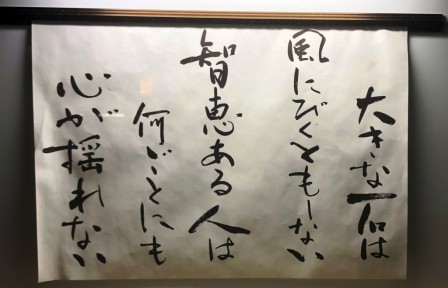 大きな石は
風にびくともしない
智恵ある人は
何ごとにも
心が揺れない